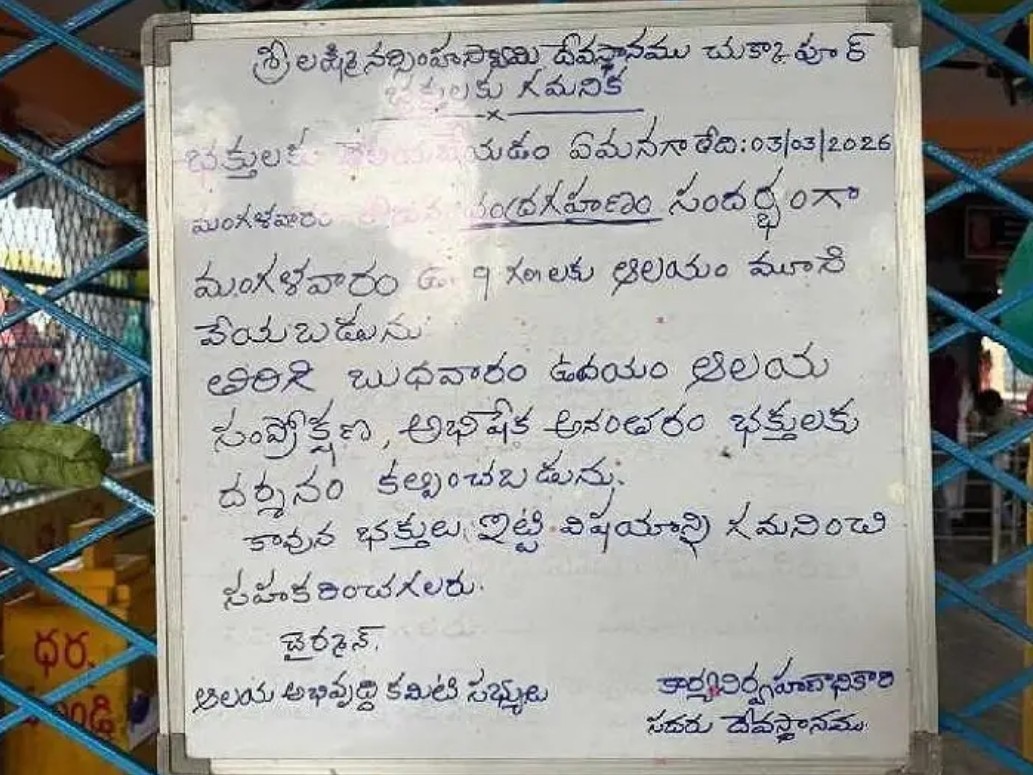 శ్రీ లక్ష్మి నర్సింహస్వామి దేవస్థానము చుక్కాపూర్
భక్తులకు గమనిక
భక్తులకు తెలియచేయడం ఏమనగా తేది:03/03/2026
మంగళవారం చంద్రగహణం సందర్భంగా
మంగళవారం ఉ. 9 గం లకు ఆలయం మూసి
వేయబడును
తిరిగి బుధవారం ఉదయం ఆలయ
సంప్రోక్షణ, అభిషేక అనంతరం భక్తులకు
దర్శనం కల్పించబడును.
కావున భక్తులు ఇట్టి విషయాన్ని గమనించి
సహకరించగలరు.
చైర్మన్.
ఆలయ అభివృద్ధి కమిటి సభ్యులు
కార్యనిర్వహణాధికారి
సదరు దేవస్థానము.
ధర.